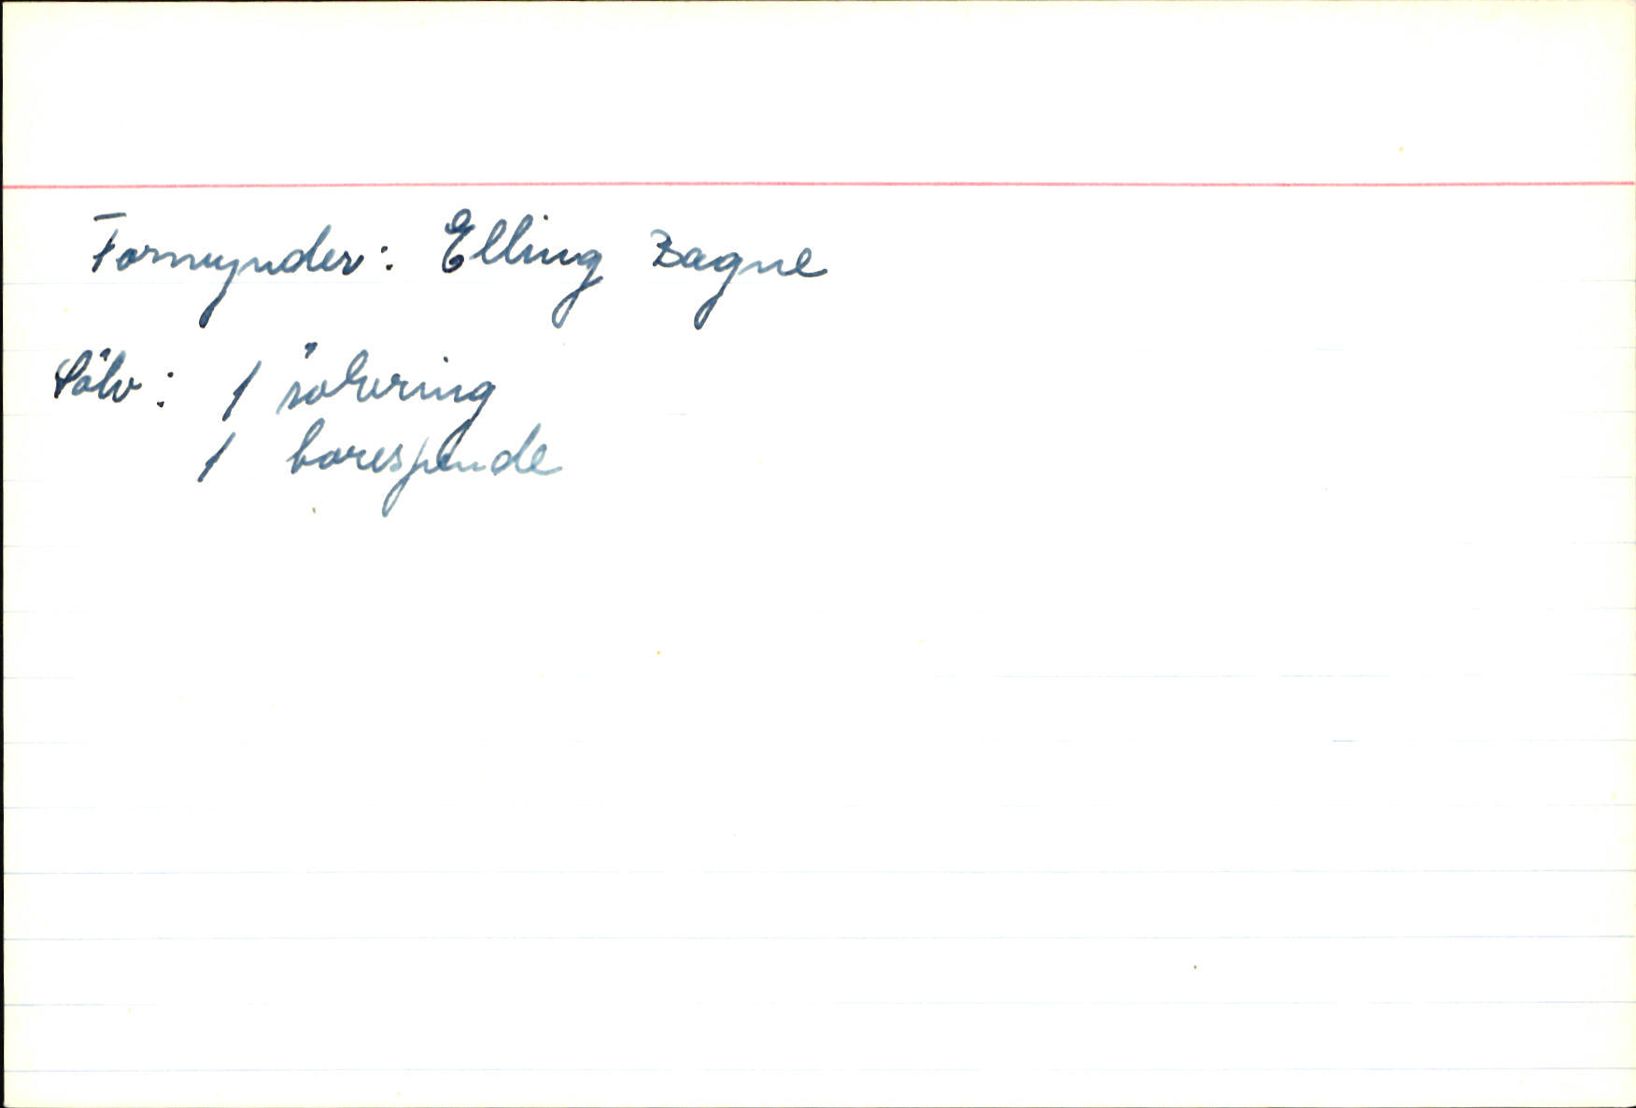 Formynder: Elling Bagne
Sölv: 1 sölvring
1 borespende